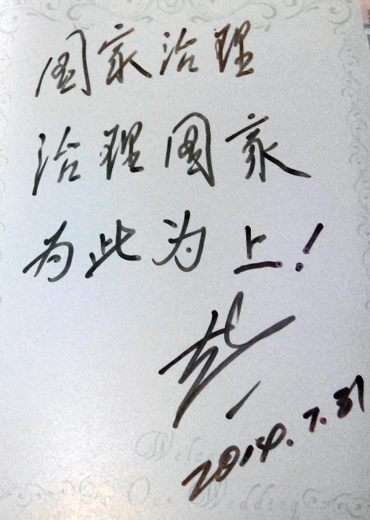 国家治理
治理国家
为此为上!
2014.7.31
Our Wedding